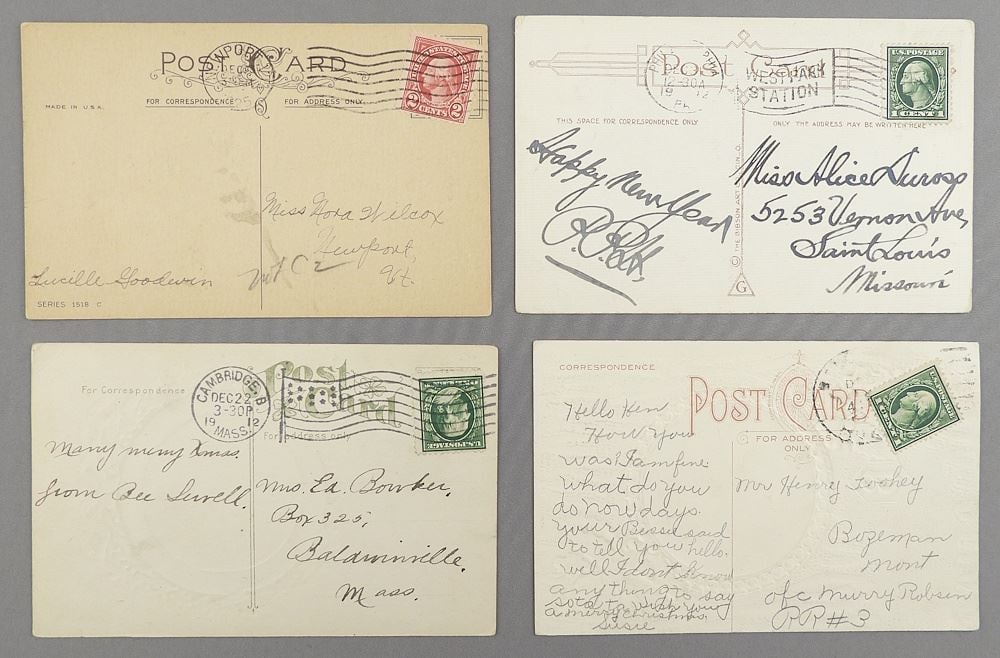 POST CARD
MADE IN U.S.A.
FOR CORRESPONDENCE
FOR ADDRESS ONLY
2 CENTS 2
Miss Nora Wilcox
Newport,
Vt.
Lucille Goodwin
SERIES 1518 C
Post Card
WEST PARK
STATION
12-30A
19 12
U.S. POSTAGE
1 CENT 1
THIS SPACE FOR CORRESPONDENCE ONLY
ONLY THE ADDRESS MAY BE WRITTEN HERE
Happy New Year
Miss Alice Duross
5253 Vernon Ave,
Saint Louis
Missouri
THE GIBSON ART
G
Post Card
CAMBRIDGE, B
DEC 22
3-30P
19 12
MASS.
U.S. POSTAGE
For Correspondence
For address only
Many merry Xmas.
from Bee Sewell.
Mrs. Ed. Bowker,
Box 325,
Baldwinville,
Mass.
CORRESPONDENCE
POST CARD
FOR ADDRESS
ONLY
U.S. POSTAGE
Hello Hen
How you
was I am fine
what do you
do now days.
your Bessie said
to tell you hello.
well I dont know
any thing to say
so to wish you
a merry Christmas.
Susie
Mr Henry Toohey
Bozeman
Mont
c/o Murry Robsen
RR#3